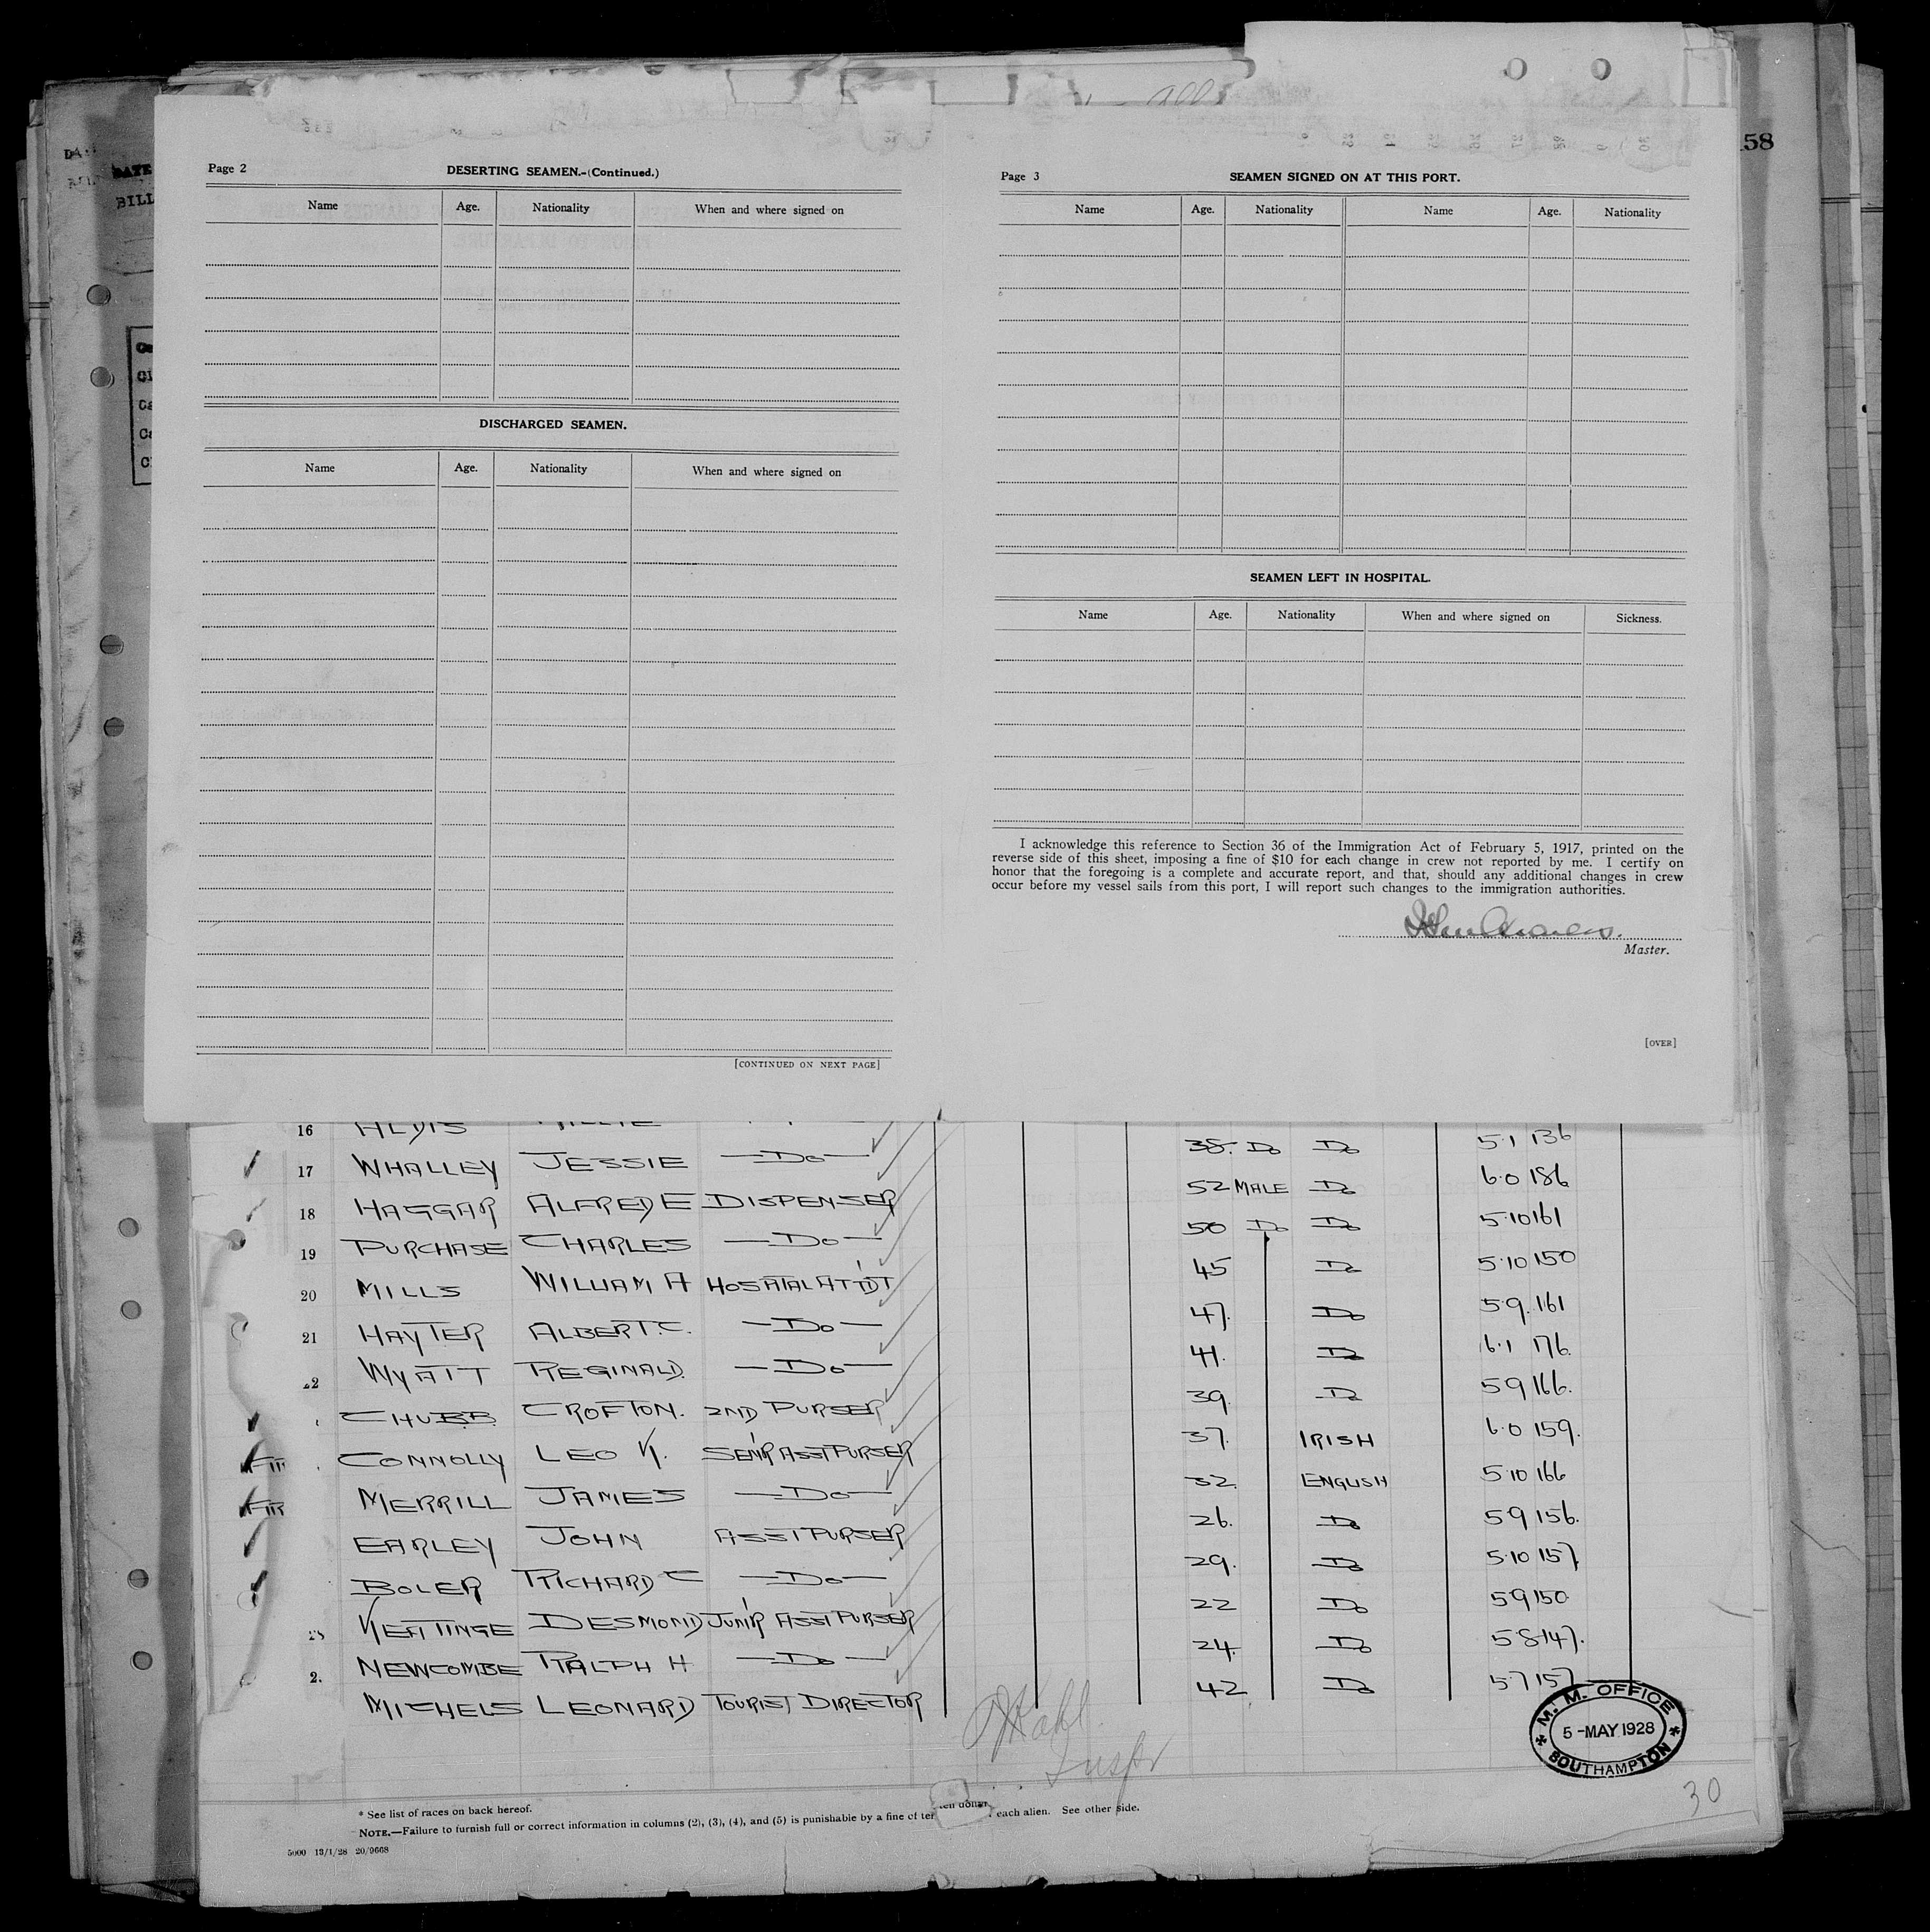 58
Page 2
DESERTING SEAMEN.-(Continued.)
Name Age. Nationality When and where signed on
DISCHARGED SEAMEN.
Name Age. Nationality When and where signed on
[CONTINUED ON NEXT PAGE]
Page 3
SEAMEN SIGNED ON AT THIS PORT.
Name Age. Nationality Name Age. Nationality
SEAMEN LEFT IN HOSPITAL.
Name Age. Nationality When and where signed on Sickness.
I acknowledge this reference to Section 36 of the Immigration Act of February 5, 1917, printed on the
reverse side of this sheet, imposing a fine of $10 for each change in crew not reported by me. I certify on
honor that the foregoing is a complete and accurate report, and that, should any additional changes in crew
occur before my vessel sails from this port, I will report such changes to the immigration authorities.
Master.
[OVER]
DATE
BILL
16 ALDIS
17 WHALLEY JESSIE —Do— 38. Do Do 5.1 136
18 HAGGAR ALFRED E DISPENSER 52 MALE Do 6.0 186
19 PURCHASE CHARLES —Do— 50 Do Do 5.10 161
20 MILLS WILLIAM A HOSPITAL ATT'DT 45 Do 5.10 150
21 HAYTER ALBERT.C. —Do— 47. Do 5.9. 161
22 WYATT REGINALD. —Do— 41. Do 6.1 176.
CHUBB. CROFTON. 2ND PURSER 39. Do 5 9 166.
CONNOLLY LEO K. SEN'R ASST PURSER 37. IRISH 6.0 159.
MERRILL JAMES —Do— 32. ENGLISH 5.10 166
EARLEY JOHN ASST PURSER 26. Do 5 9 156.
BOLER RICHARD C —Do— 29. Do 5.10 157
28 KEATINGE DESMOND JUN'R ASST PURSER 22 Do 5 9 150.
2. NEWCOMBE RALPH H —Do— 24. Do 5 8 147.
MICHELS LEONARD TOURIST DIRECTOR 42 Do 5.7 157
Inspr
M. M. OFFICE
5 -MAY 1928
SOUTHAMPTON
30
* See list of races on back hereof.
NOTE.—Failure to furnish full or correct information in columns (2), (3), (4), and (5) is punishable by a fine of ten dollars each alien. See other side.
5000 13/1/28 20/9668